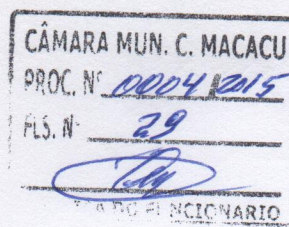 CÂMARA MUN. C. MACACU
PROC. Nº 0004/2015
FLS. Nº 29
FUNCIONARIO